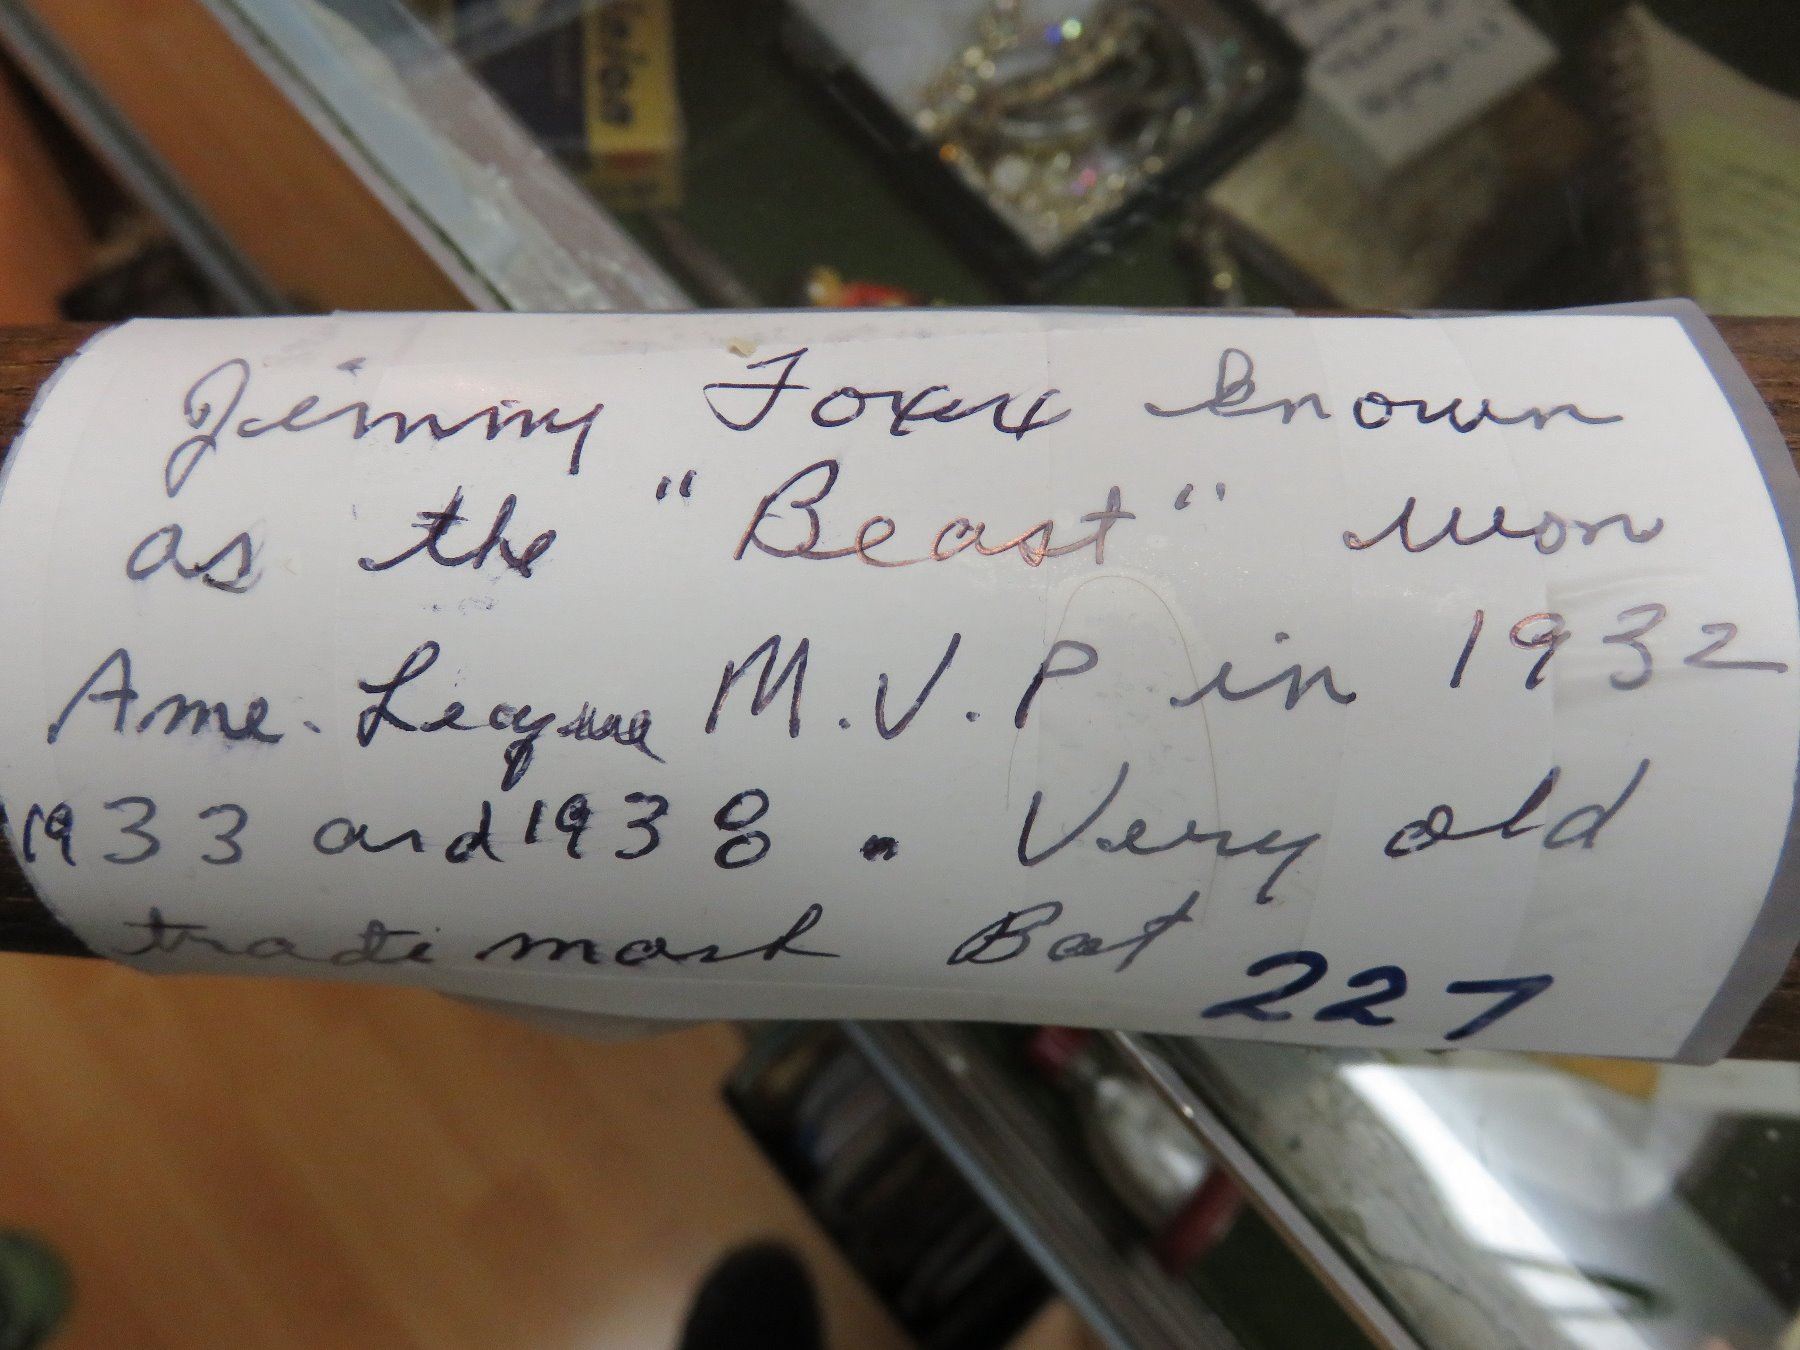 Jimmy Foxx known
as the "Beast" won
Ame. League M.V.P in 1932
1933 and 1938. Very old
trade mark Bat
227